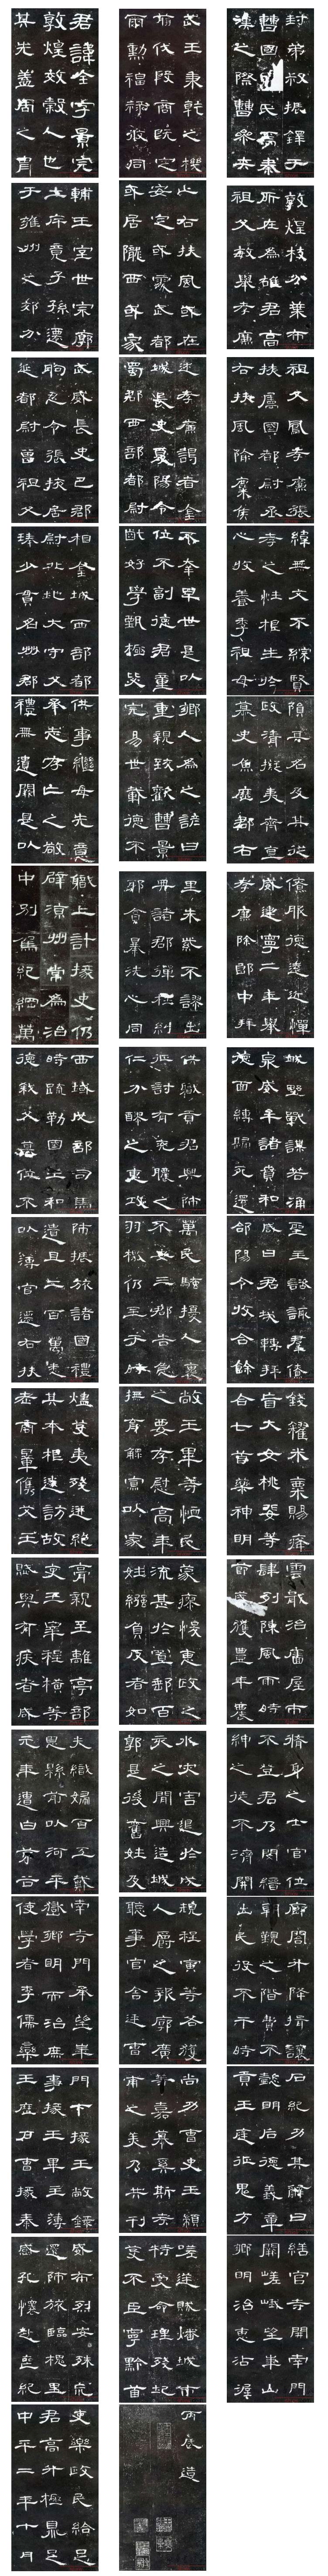 君諱全字景完
敦煌效穀人也
其先蓋周之胄
武王秉乾之機
翦伐殷商既定
爾勳福祿攸同
封弟叔振鐸于
曹國因氏焉秦
漢之際曹參夾
輔王室世宗廓
土斥竟子孫遷
于雍州之郊分
止右扶風或在
安定或處武都
或居隴西或家
敦煌枝分葉布
所在為雄君高
祖父敏舉孝廉
武威長史巴郡
朐忍令張掖居
延都尉曾祖父
述孝廉謁者金
城長史夏陽令
蜀郡西部都尉
祖父鳳孝廉張
掖屬國都尉丞
右扶風隃麋侯
相金城西部都
尉北地太守父
琫少貫名州郡
不幸早世是以
位不副德君童
齔好學甄極毖
緯無文不綜賢
孝之性根生於
心收養季祖母
供事繼母先意
承志存亡之敬
禮無遺闕是以
鄉人為之諺曰
重親致歡曹景
完易世載德不
隕其名及其從
政清擬夷齊直
慕史魚歷郡右
職上計掾史仍
辟涼州常為治
中別駕紀綱萬
里朱紫不謬出
典諸郡彈枉糾
邪貪暴洗心同
僚服德遠近憚
威建寧二年舉
孝廉除郎中拜
西域戊部司馬
時疏勒國王和
德弒父篡位不
供職貢君興師
征討有兗膿之
仁分醪之惠攻
城野戰謀若涌
泉威牟諸賁和
德面縛歸死還
師振旅諸國禮
遺且二百萬悉
以簿官遷右扶
萬民騷擾人裹
不安三郡告急
羽檄仍至于時
聖主諮諏群僚
咸曰君哉轉拜
郃陽令收合餘
燼芟夷殘迸絕
其本根遂訪故
老商量儁艾王
敞王畢等恤民
之要存慰高年
撫育鰥寡以家
錢糴米粟賜癃
盲大女桃婓等
合七首藥神明
膏親至離亭部
吏王宰程橫等
賦與有疾者咸
蒙瘳悛惠政之
流甚於置郵百
姓繈負反者如
雲戢治廧屋市
肆列陳風雨時
節歲獲豐年農
夫織婦百工戴
恩縣前以河平
元年遭白茅谷
水灾害退於戌
亥之間興造城
郭是後舊姓及
脩身之士官位
不登君乃閔縉
紳之徒不濟開
南寺門承望華
嶽鄉明而治庶
使學者李儒欒
規程寅等各獲
人爵之報廓廣
聽事官舍廷曹
廊閣升降揖讓
朝覲之階費不
出民役不干時
門下掾王敞錄
事掾王畢主簿
王歷戶曹掾秦
尚功曹史王顓
等嘉慕奚斯考
甫之美乃共刊
石紀功其辭曰
懿明后德義章
貢王庭征鬼方
威布烈安殊荒
還師旅臨槐里
感孔懷赴喪紀
嗟逆賊燔城市
特受命理殘圮
芟不臣寧黔首
繕官寺開南門
闕嵯峨望華山
鄉明治惠沾渥
吏樂政民給足
君高升極鼎足
中平二年十月
丙辰造